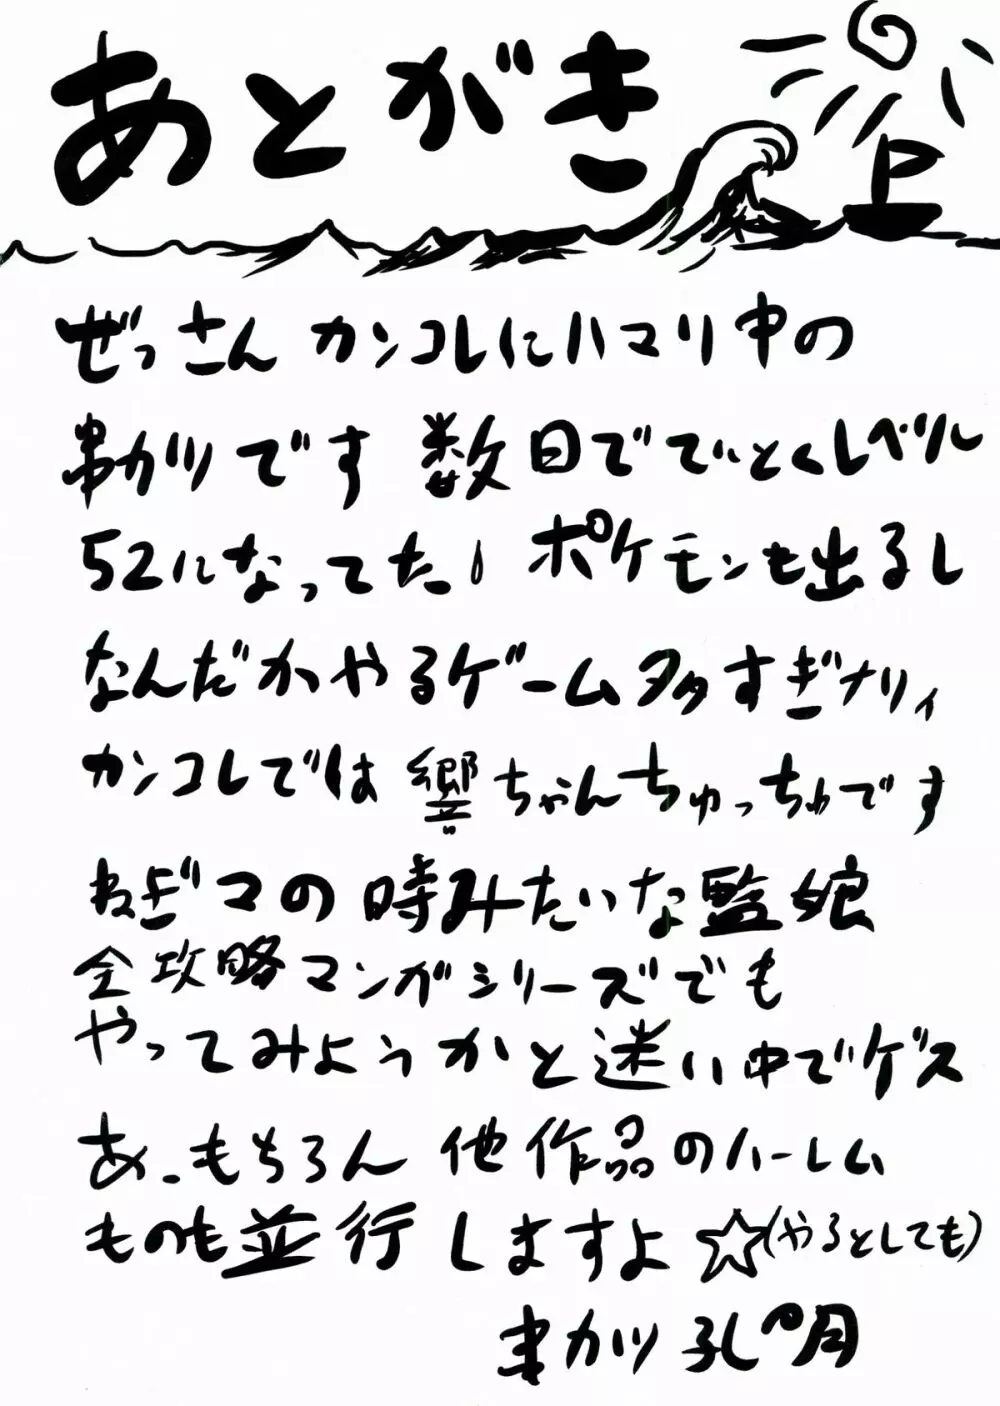 あとがき
ぜっさんカンコレにハマリ中の
串カツです 数日でていとくレベル
52になってた! ポケモンも出るし
なんだかやるゲーム多すぎナリィ
カンコレでは響ちゃんちゅっちゅです
ねぎマの時みたいな監娘
全攻略マンガシリーズでも
やってみようかと迷い中でゲス
あ、もちろん他作品のハーレム
ものも並行しますよ☆(やるとしても)
串カツ孔明